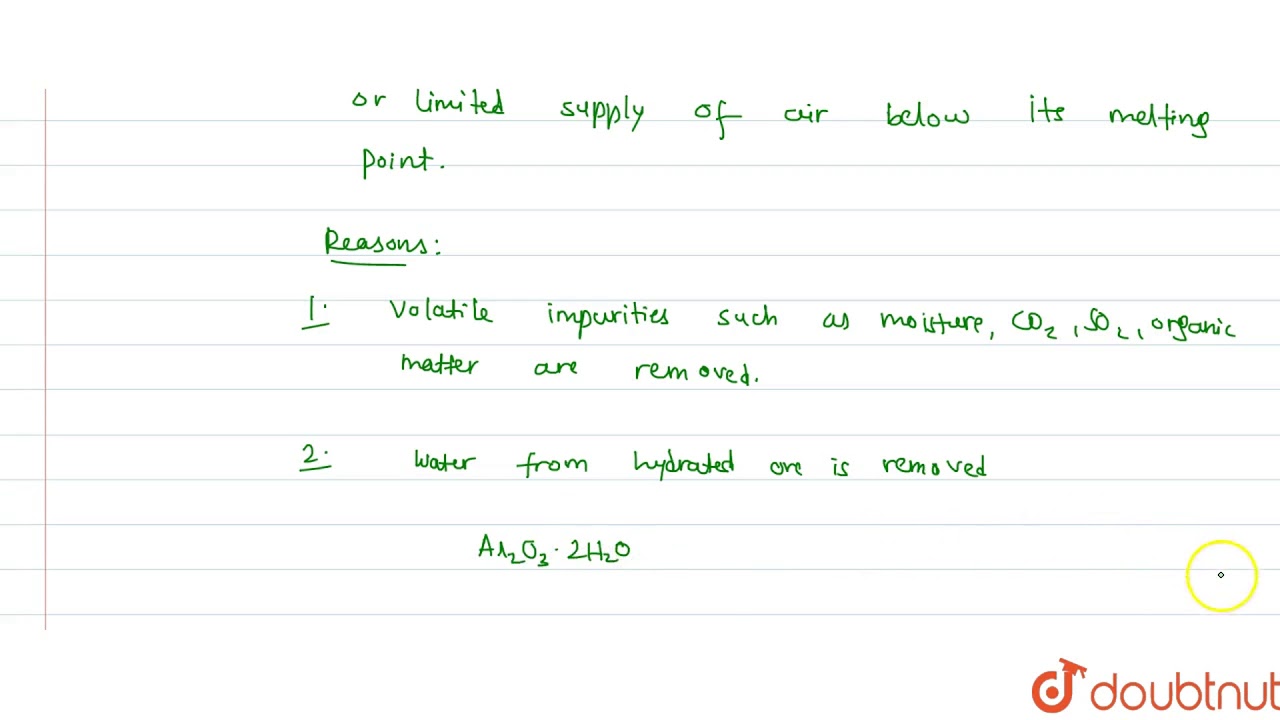 or limited supply of air below its melting
point.
Reasons:
1. Volatile impurities such as moisture, CO₂, SO₂, organic
matter are removed.
2. Water from hydrated ore is removed
Al₂O₃·2H₂O
doubtnut